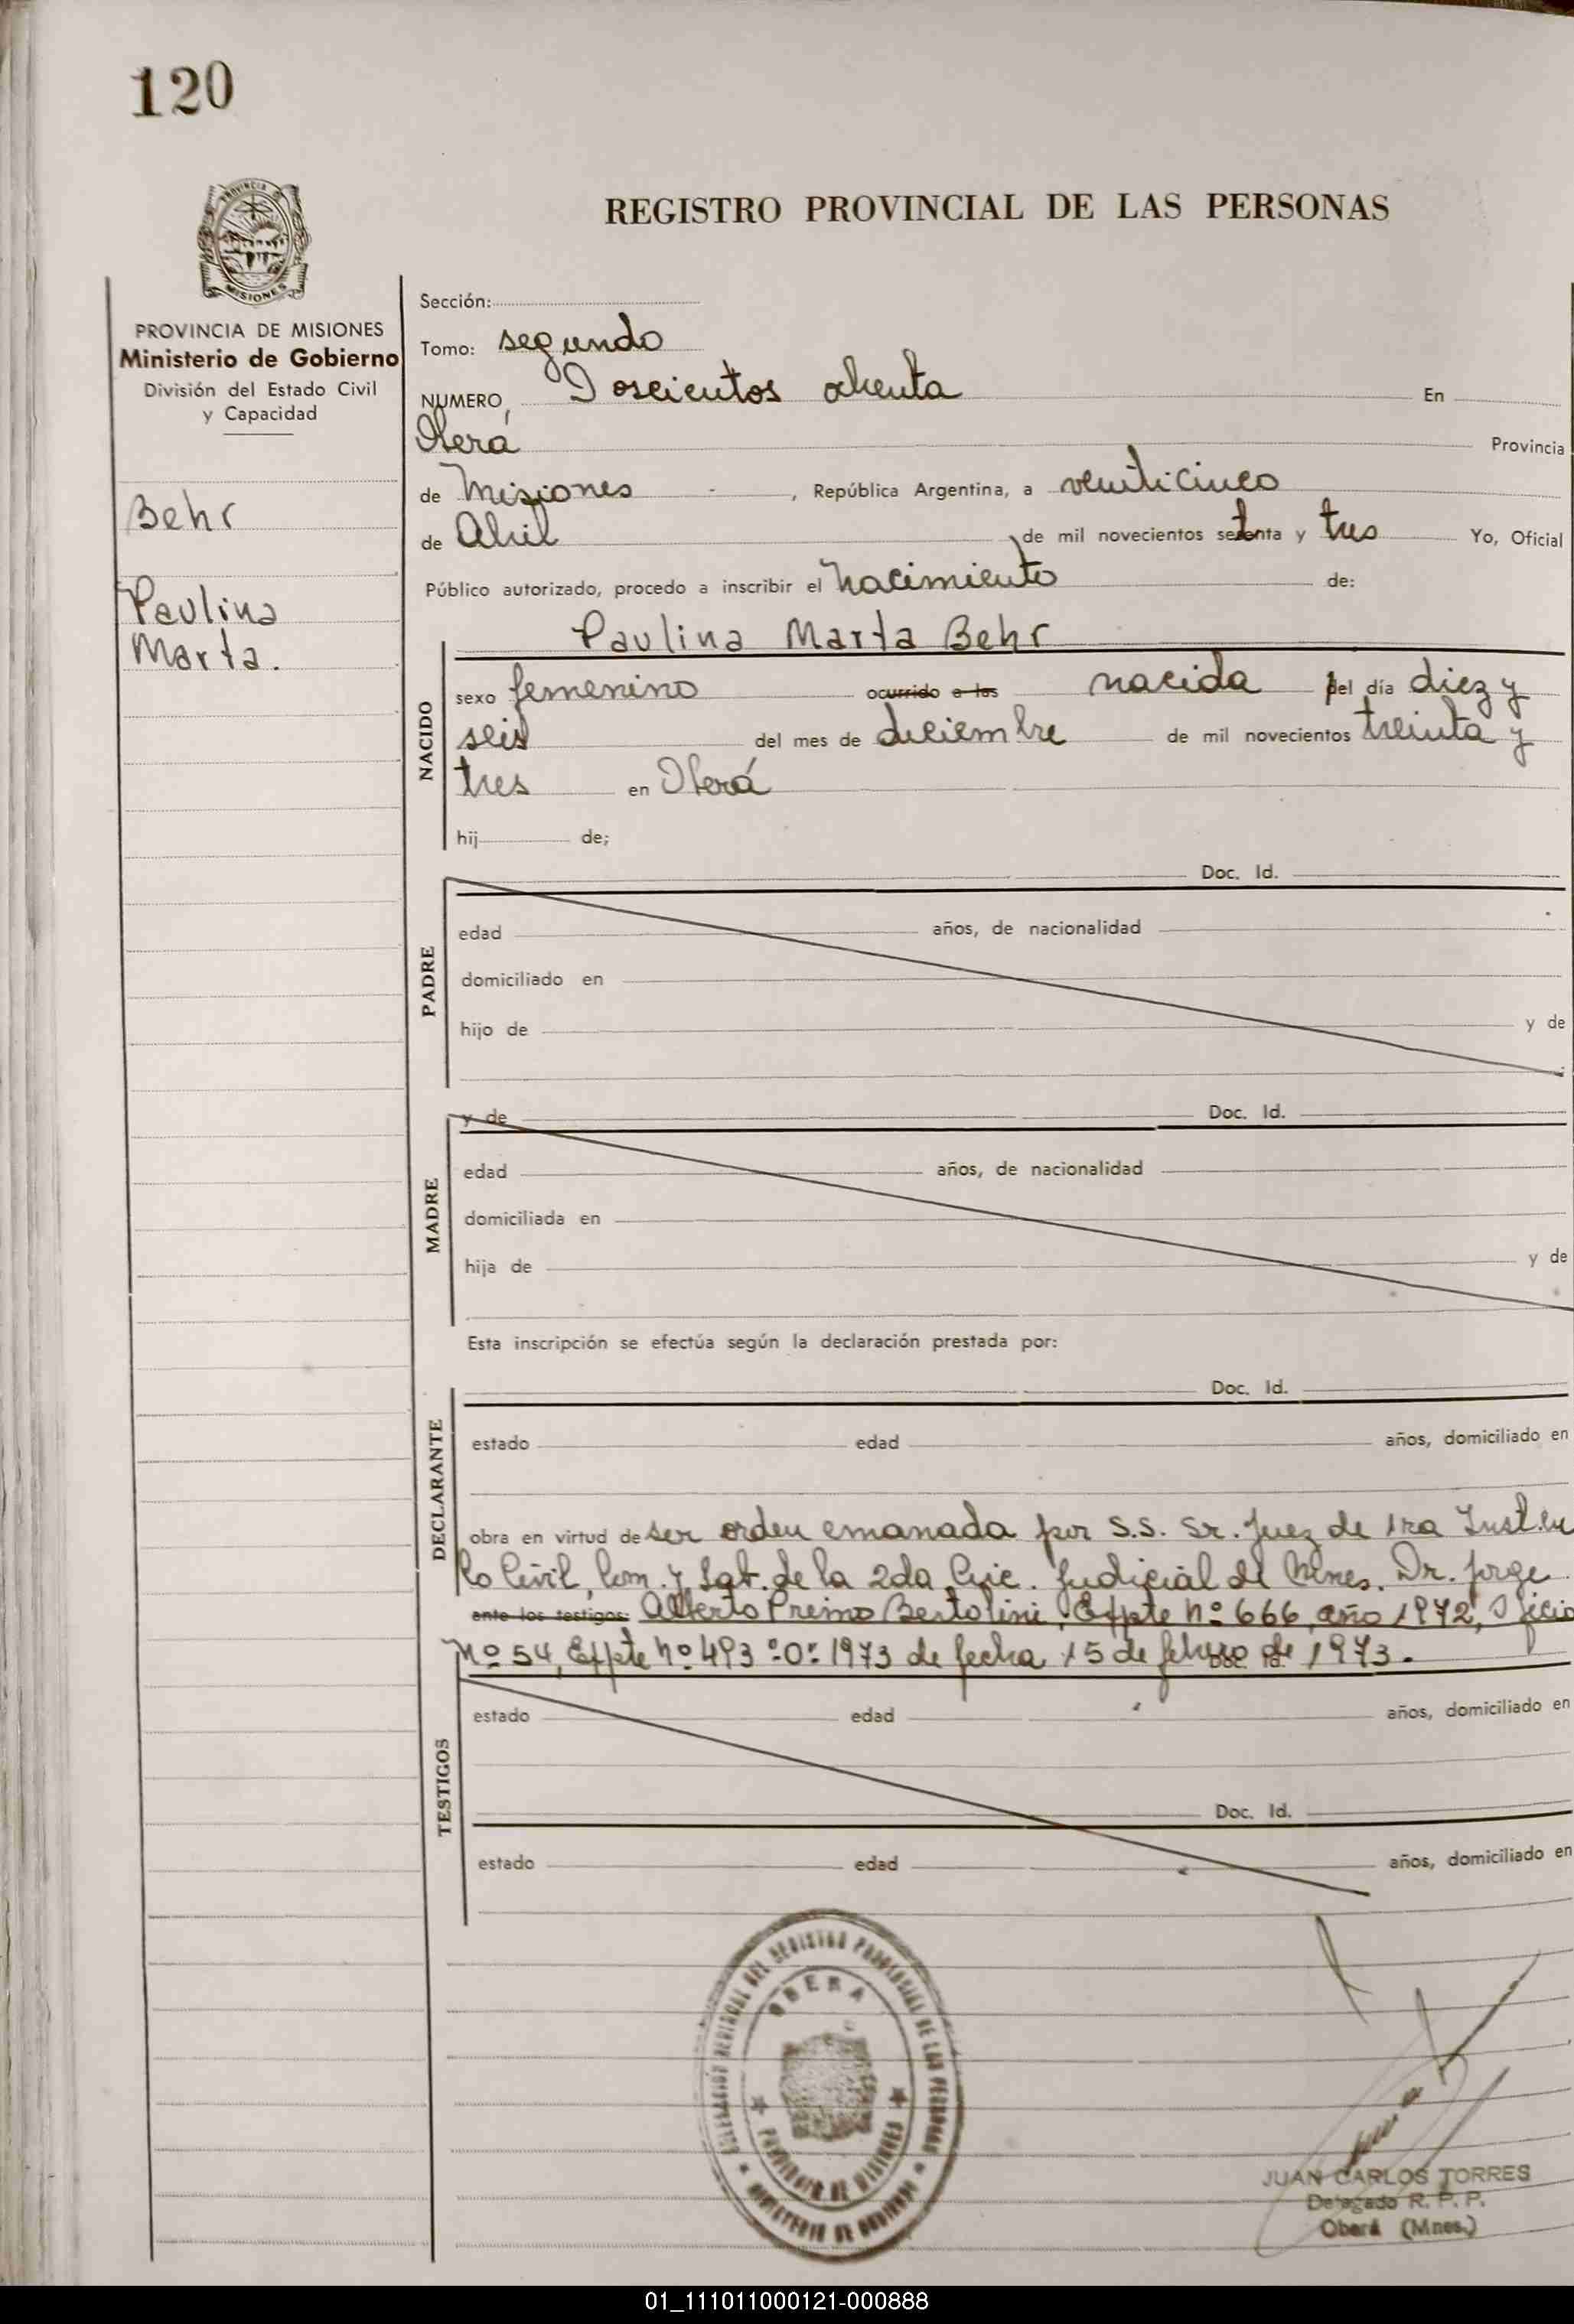 120
PROVINCIA
MISIONES
REGISTRO PROVINCIAL DE LAS PERSONAS
PROVINCIA DE MISIONES
Ministerio de Gobierno
División del Estado Civil
y Capacidad
Behr
Paulina
Marta.
Sección:
Tomo: segundo
NUMERO, Doscientos ochenta En
Oberá Provincia
de Misiones - , República Argentina, a veinticinco
de Abril de mil novecientos setenta y tres Yo, Oficial
Público autorizado, procedo a inscribir el nacimiento de:
Paulina Marta Behr
NACIDO
sexo femenino ocurrido a las nacida del día diez y
seis del mes de diciembre de mil novecientos treinta y
tres en Oberá
hij de;
PADRE
Doc. Id.
edad años, de nacionalidad
domiciliado en
hijo de y de
MADRE
y de Doc. Id.
edad años, de nacionalidad
domiciliada en
hija de y de
Esta inscripción se efectúa según la declaración prestada por:
DECLARANTE
Doc. Id.
estado edad años, domiciliado en
obra en virtud de ser orden emanada por S.S. Sr. Juez de 1ra Inst. en
lo Civil, Com. y Lab. de la 2da Circ. Judicial de Mnes. Dr. Jorge
ante los testigos: Alberto Primo Bertolini, Expte nº 666, año 1972, Oficio
Nº 54, Expte nº 493 "O" 1973 de fecha 15 de febrero de 1973.
TESTIGOS
estado edad años, domiciliado en
Doc. Id.
estado edad años, domiciliado en
DELEGACIÓN REGIONAL DEL REGISTRO PROVINCIAL DE LAS PERSONAS
OBERA
PROVINCIA DE MISIONES
MINISTERIO DE GOBIERNO
JUAN CARLOS TORRES
Delegado R. P. P.
Oberá (Mnes.)
01_111011000121-000888